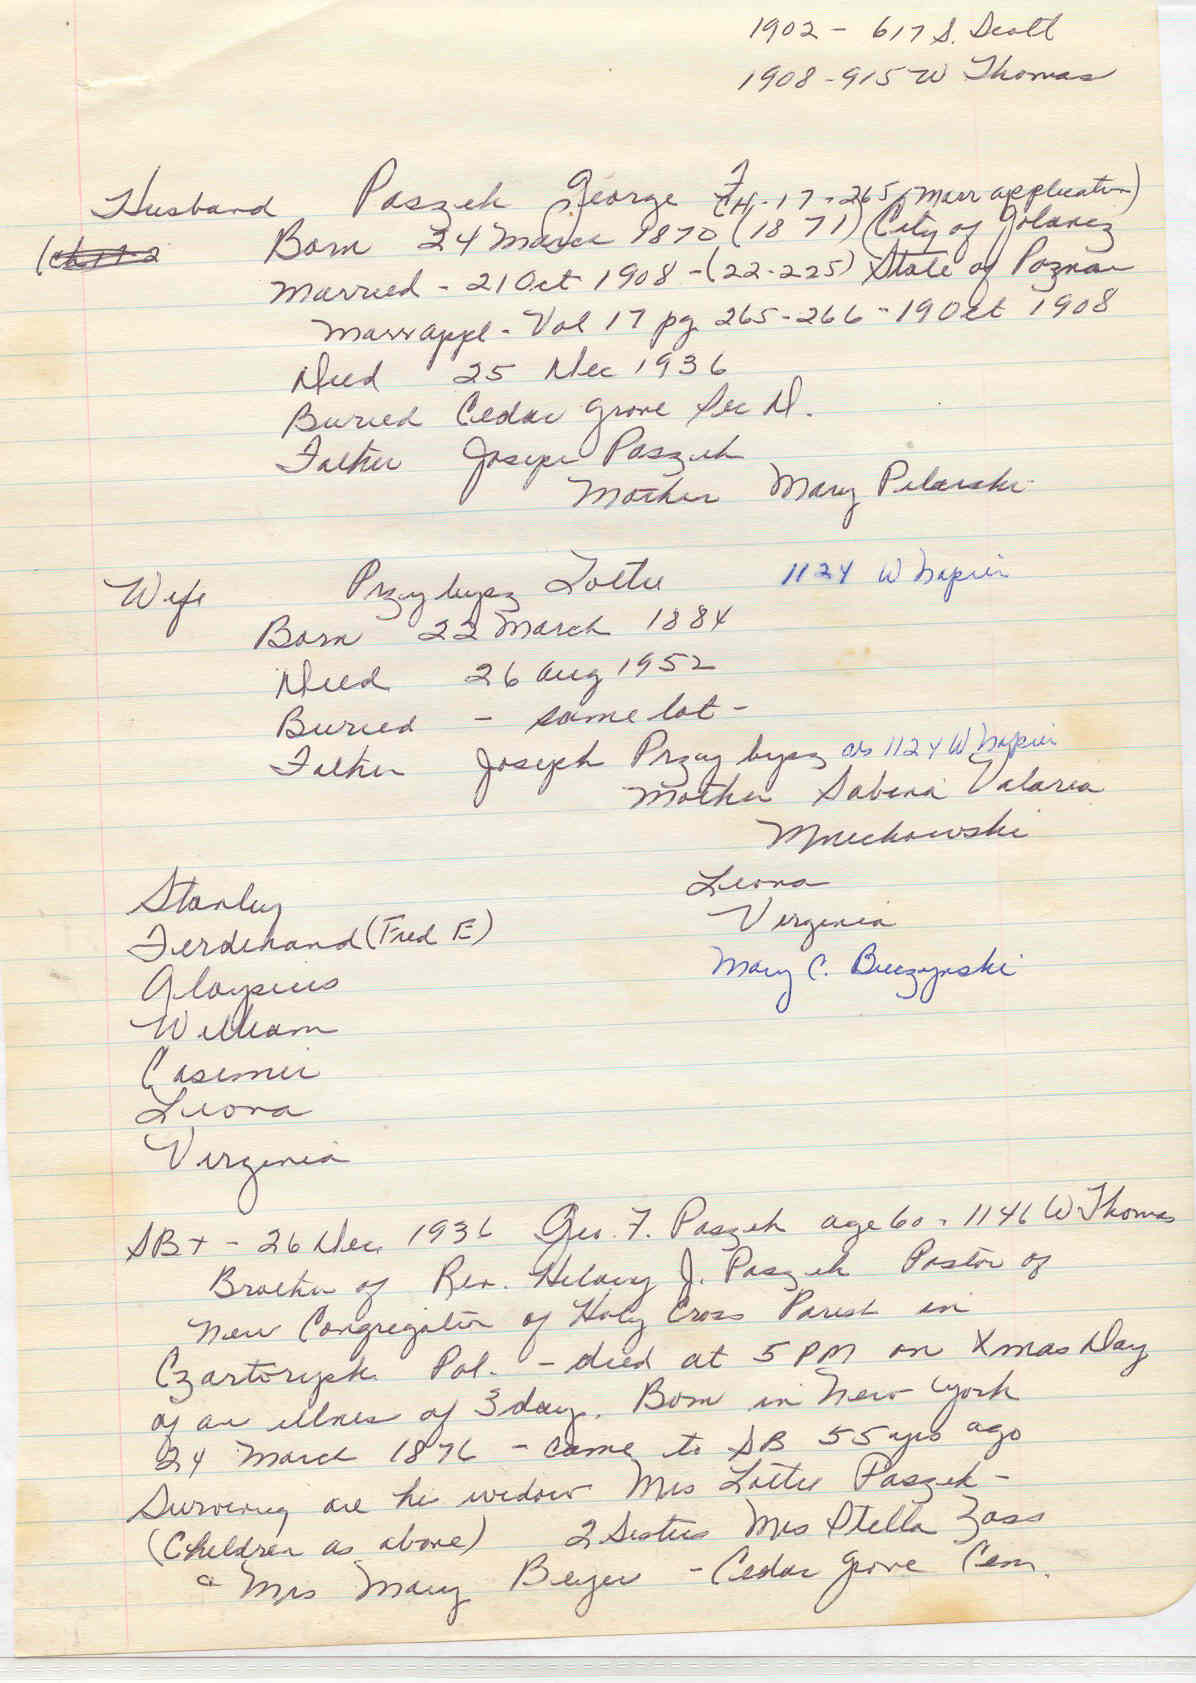 1902 - 617 S. Scott
1908 - 915 W Thomas
Husband Paszek George F
(CH-17-265, Marr application)
Born 24 March 1870 (1871) (City of Golancz
Married - 21 Oct 1908 - (22-225) State of Poznan
Marr appl - Vol 17 pg 265-266 - 19 Oct 1908
Died 25 Dec 1936
Buried Cedar Grove Sec D.
Father Joseph Paszek
Mother Mary Pilarski
Wife Przybysz Lottie 1124 W Napier
Born 22 March 1884
Died 26 Aug 1952
Buried - same lot -
Father Joseph Przybysz 1124 W Napier
Mother Sabena Valarea
Mnichowski
Leona
Virginia
Mary C. Buczynski
Stanley
Ferdinand (Fred E)
Aloysius
William
Casimir
Leona
Virginia
SBT - 26 Dec. 1936 Geo. F. Paszek age 60 - 1146 W Thomas
Brother of Rev. Hilary J. Paszek Pastor of
New Congregation of Holy Cross Parish in
Pol. - died at 5 PM on Xmas Day
of an illnes of 3 days. Born in New York
24 March 1876 - came to SB 55 yrs ago
Surviving are his widow Mrs Lottie Paszek -
(Children as above) 2 Sisters Mrs Stella Zass
& Mrs Mary Beyer - Cedar Grove Cem.